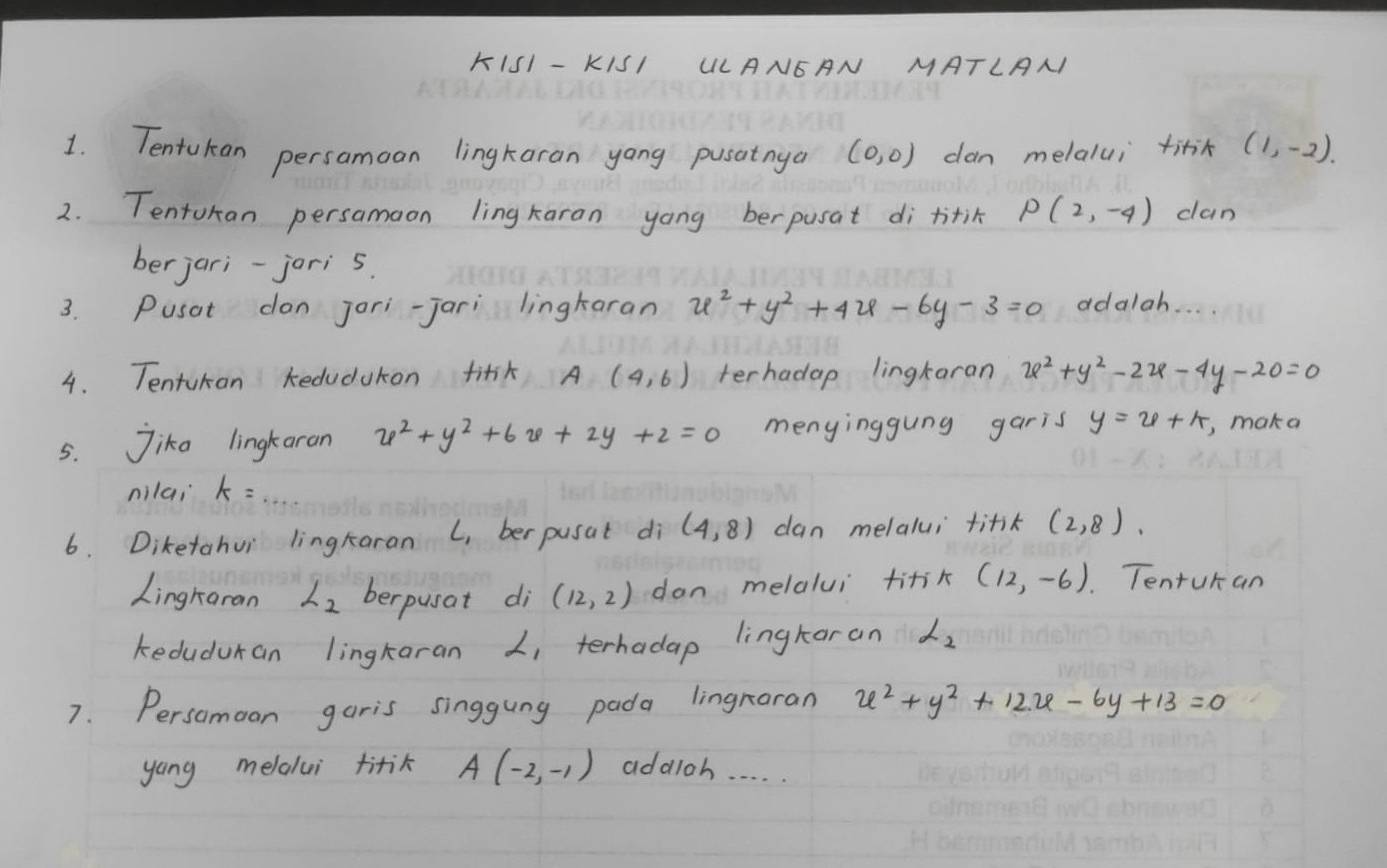 KISI - KISI ULANGAN MATLAN
1. Tentukan persamaan lingkaran yang pusatnya (0,0) dan melalui titik (1,-2).
2. Tentukan persamaan lingkaran yang berpusat di titik P(2,-4) dan
berjari - jari 5.
3. Pusat dan jari-jari lingkaran x² + y² + 4x - 6y - 3 = 0 adalah....
4. Tentukan kedudukan titik A (4,6) terhadap lingkaran x² + y² - 2x - 4y - 20 = 0
5. Jika lingkaran x² + y² + 6x + 2y + 2 = 0 menyinggung garis y = x + k, maka
nilai k = ....
6. Diketahui lingkaran L₁ berpusat di (4,8) dan melalui titik (2,8).
Lingkaran L₂ berpusat di (12,2) dan melalui titik (12,-6). Tentukan
kedudukan lingkaran L₁ terhadap lingkaran L₂
7. Persamaan garis singgung pada lingkaran x² + y² + 12x - 6y + 13 = 0
yang melalui titik A (-2,-1) adalah .....